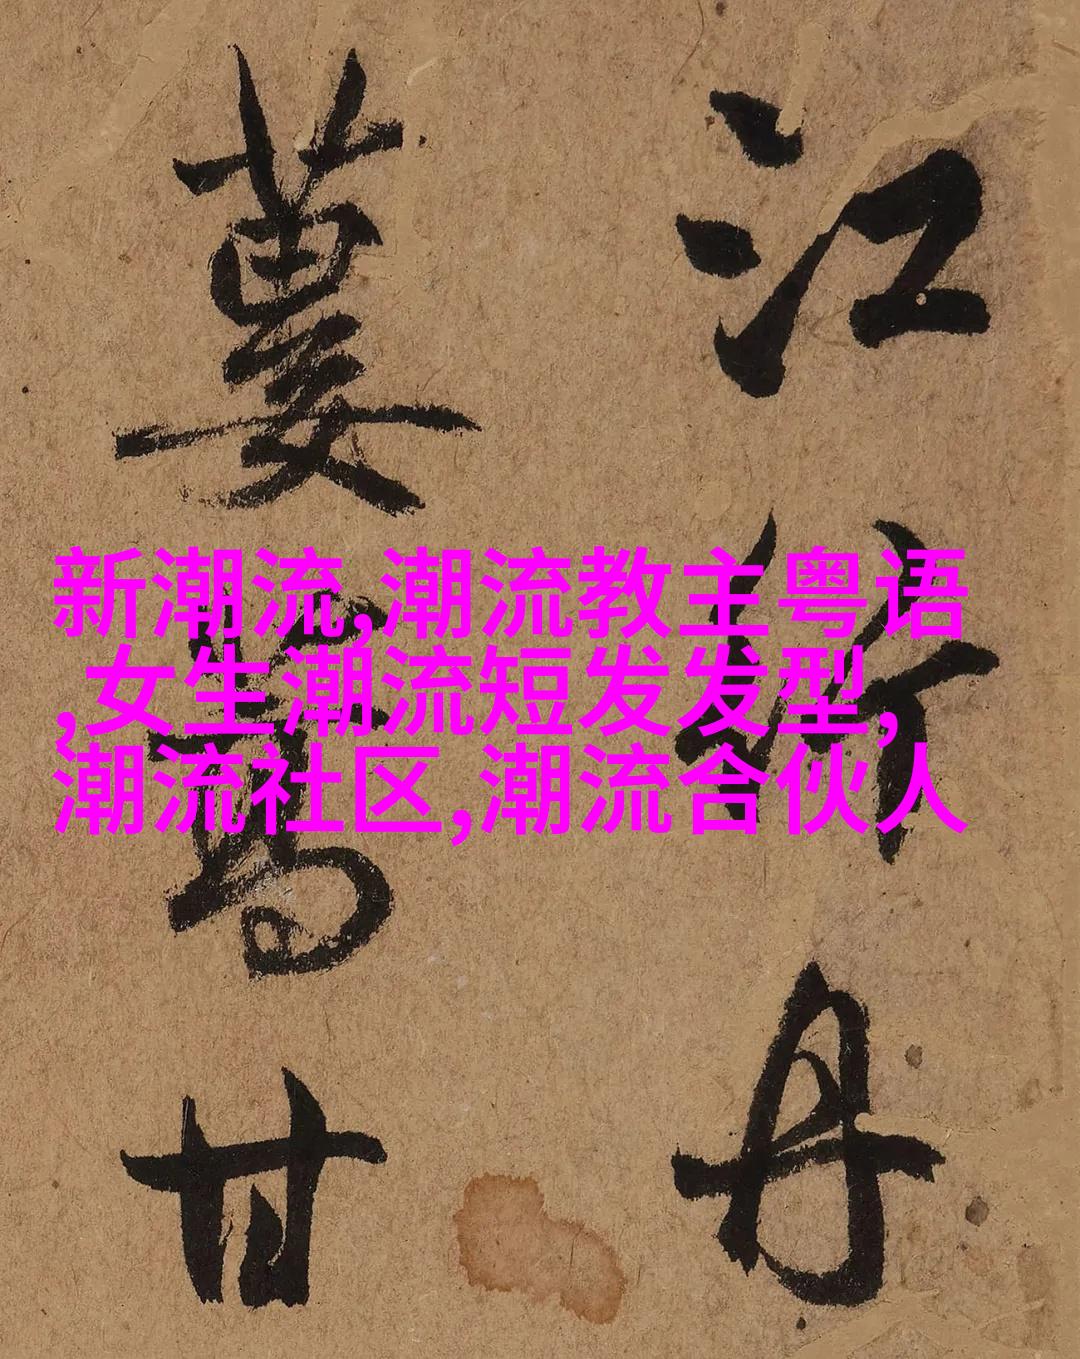 新潮流,潮流教主粤语
,女生潮流短发发型,
潮流社区,潮流合伙人
江丹
蔞蒿甘